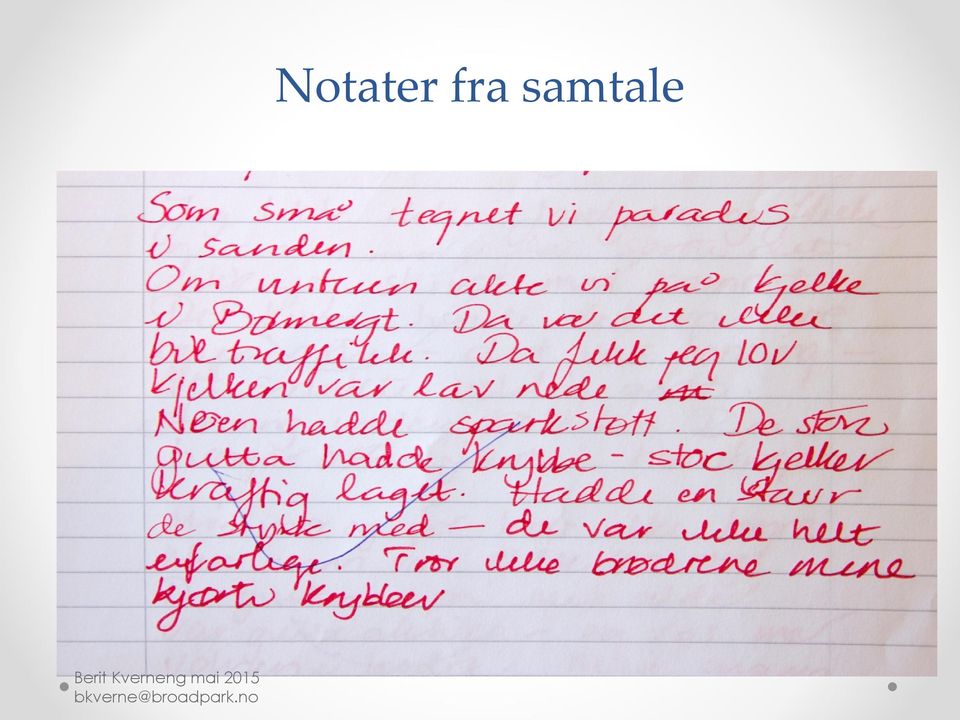 Notater fra samtale
Som små tegnet vi paradis
i sanden.
Om vinteren akte vi på kjelke
i Bomveigt. Da var det ikke
biltraffikk. Da fikk jeg lov
kjelken var lav nede
Noen hadde sparkstott. De store
gutta hadde knybbe - store kjelker
kraftig laget. Hadde en staur
de styrte med — de var ikke helt
ufarlige. Tror ikke brødrene mine
kjørte knybber
Berit Kverneng mai 2015
bkverne@broadpark.no